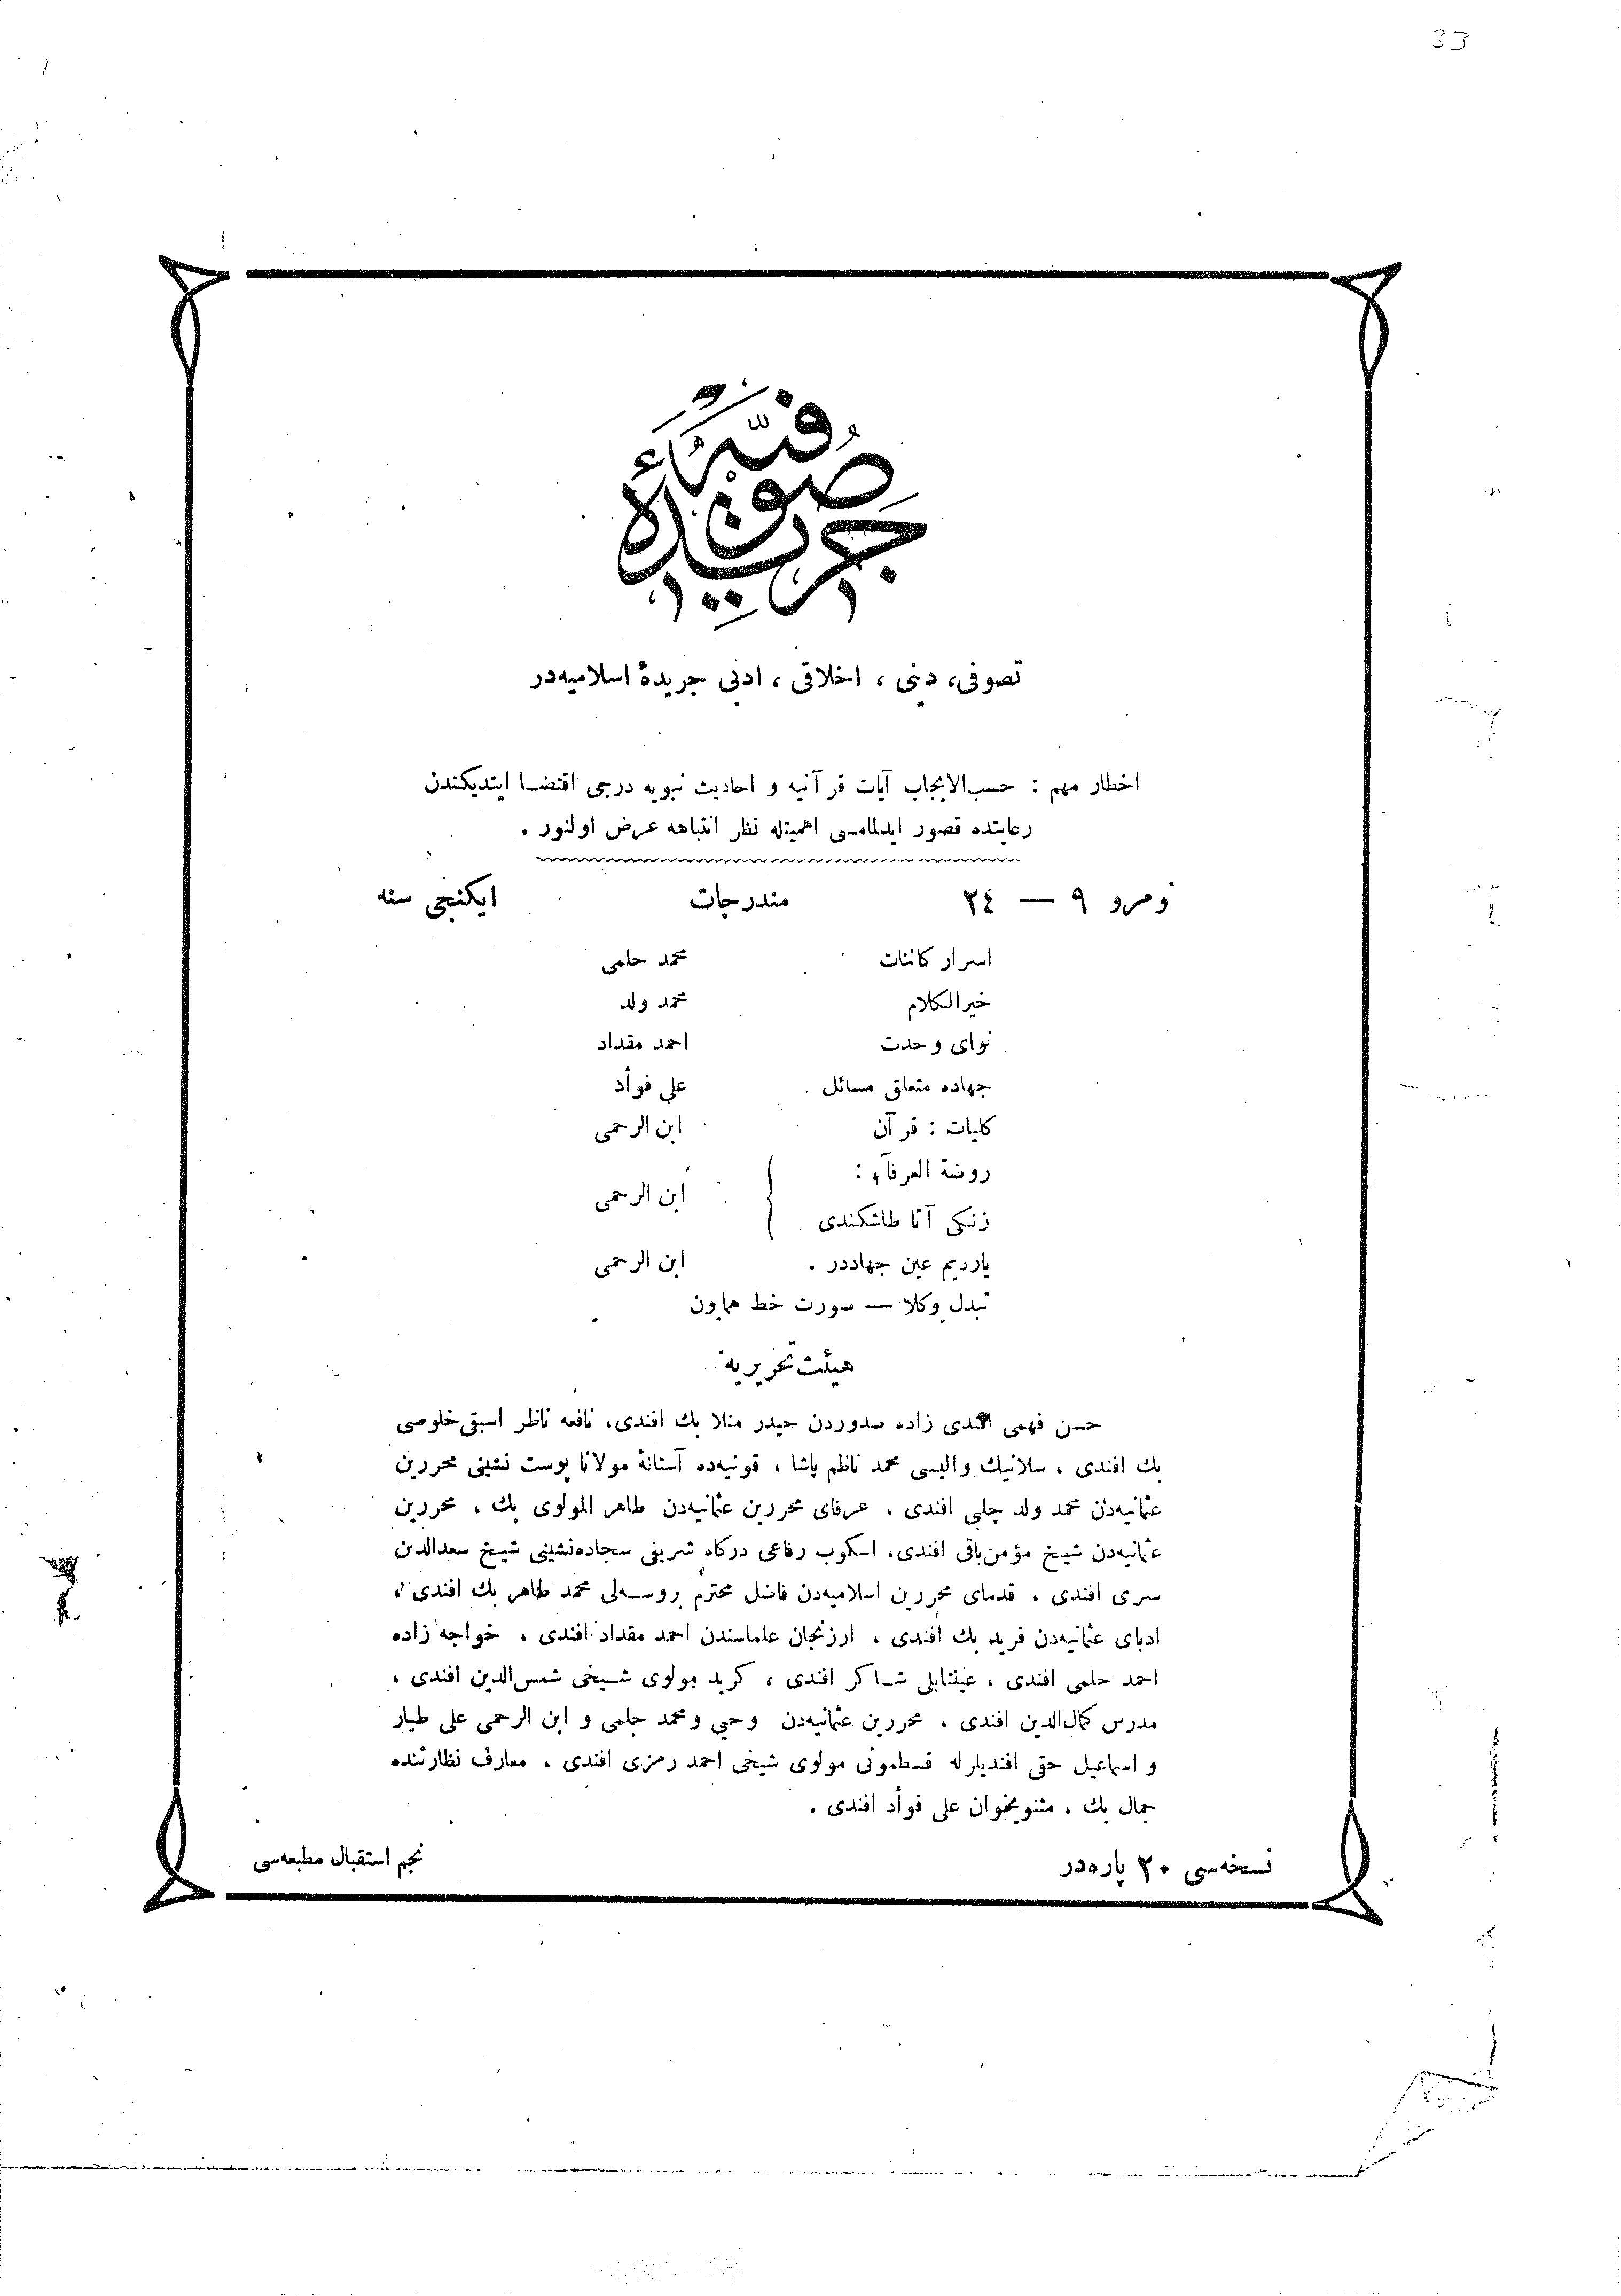 33
جريدۀ صوفيه
تصوفی، دینی ، اخلاقی ، ادبی جریدۀ اسلامیه‌در
اخطار مهم : حسب‌الایجاب آیات قرآنیه و احادیث نبویه درجی اقتضا ایتدیکندن
رعایتده قصور ایدلمامسی اهمیتله نظر انتباهه عرض اولنور .
نومرو ٩ — ٣٤ مندرجات ایکنجی سنه
اسرار کائنات محمد حلمی
خیرالکلام محمد ولد
نوای وحدت احمد مقداد
جهاده متعلق مسائل علی فوأد
کلیات : قرآن ابن الرحمی
روضة العرفآء :
زنکی آتا طاشکندی ابن الرحمی
یاردیم عین جهاددر . ابن الرحمی
تبدل وکلا — صورت خط همایون
هیئت تحریریه
حسن فهمی افندی زاده صدوردن حیدر منلا بك افندی، نافعه ناظر اسبقی خلوصی
بك افندی ، سلانیك والیسی محمد ناظم پاشا ، قونیه‌ده آستانۀ مولانا پوست نشینی محررین
عثمانیه‌دن محمد ولد چلبی افندی ، عرفای محررین عثمانیه‌دن طاهر المولوی بك ، محررین
عثمانیه‌دن شیخ مؤمن باقی افندی، اسکوب رفاعی درکاه شریفی سجاده‌نشینی شیخ سعدالدین
سری افندی ، قدمای محررین اسلامیه‌دن فاضل محترم بروسه‌لی محمد طاهر بك افندی ،
ادبای عثمانیه‌دن فرید بك افندی ، ارزنجان علماسندن احمد مقداد افندی ، خواجه زاده
احمد حلمی افندی ، عینتابلی شاکر افندی ، کرید مولوی شیخی شمس‌الدین افندی ،
مدرس کمال‌الدین افندی ، محررین عثمانیه‌دن وحیی ومحمد حلمی و ابن الرحمی علی طیار
و اسماعیل حقی افندیلرله قسطمونی مولوی شیخی احمد رمزی افندی ، معارف نظارتنده
جمال بك ، مثنویخوان علی فوأد افندی .
نسخه‌سی ٢٠ پاره‌در نجم استقبال مطبعه‌سی